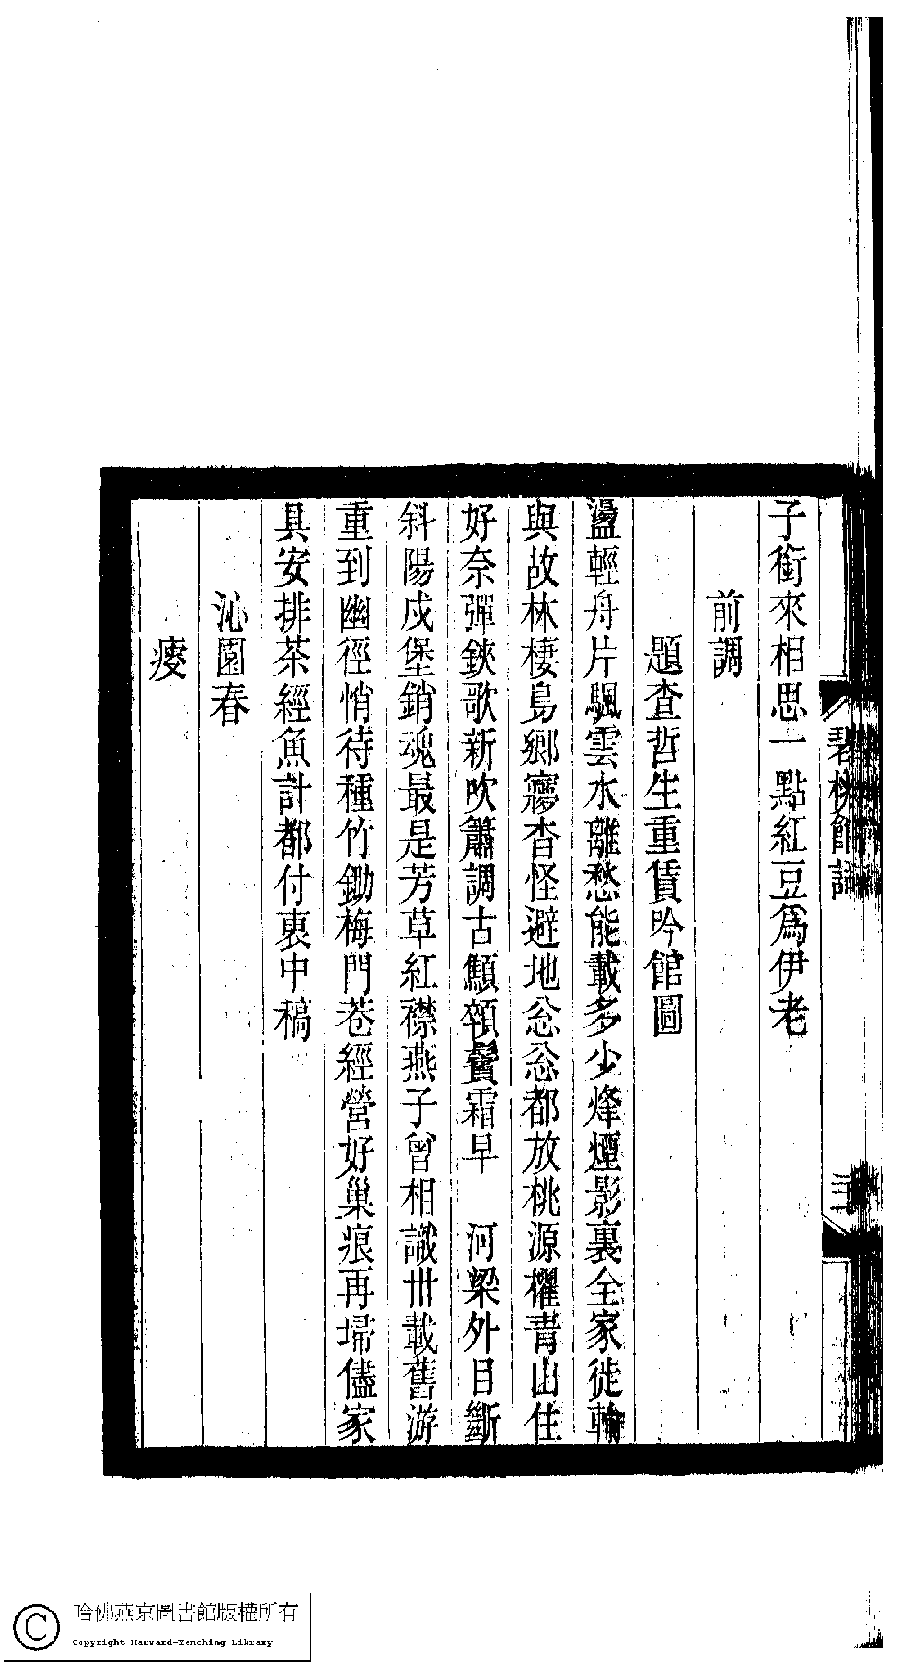 子銜來相思一點紅豆爲伊老
前調
題査哲生重賃吟館圖
盪輕舟片颿雲水離愁能載多少烽煙影裏全家徙輸
與故林棲鳥鄉夢杳怪避地怱怱都放桃源櫂靑山住
好奈彈鋏歌新吹簫調古顦顇鬢霜早　河梁外目斷
斜陽戍堡銷魂最是芳草紅襟燕子曾相識卅載舊游
重到幽徑悄待種竹鋤梅門巷經營好巢痕再埽儘家
具安排茶經魚計都付裏中稿
沁園春
痩
碧桃館詞
三
哈佛燕京圖書館版權所有
Copyright Harvard-Yenching Library